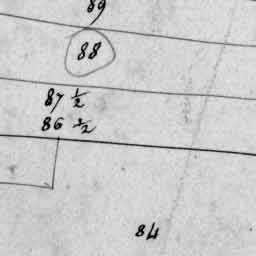 89
88
87 1/2
86 1/2
84